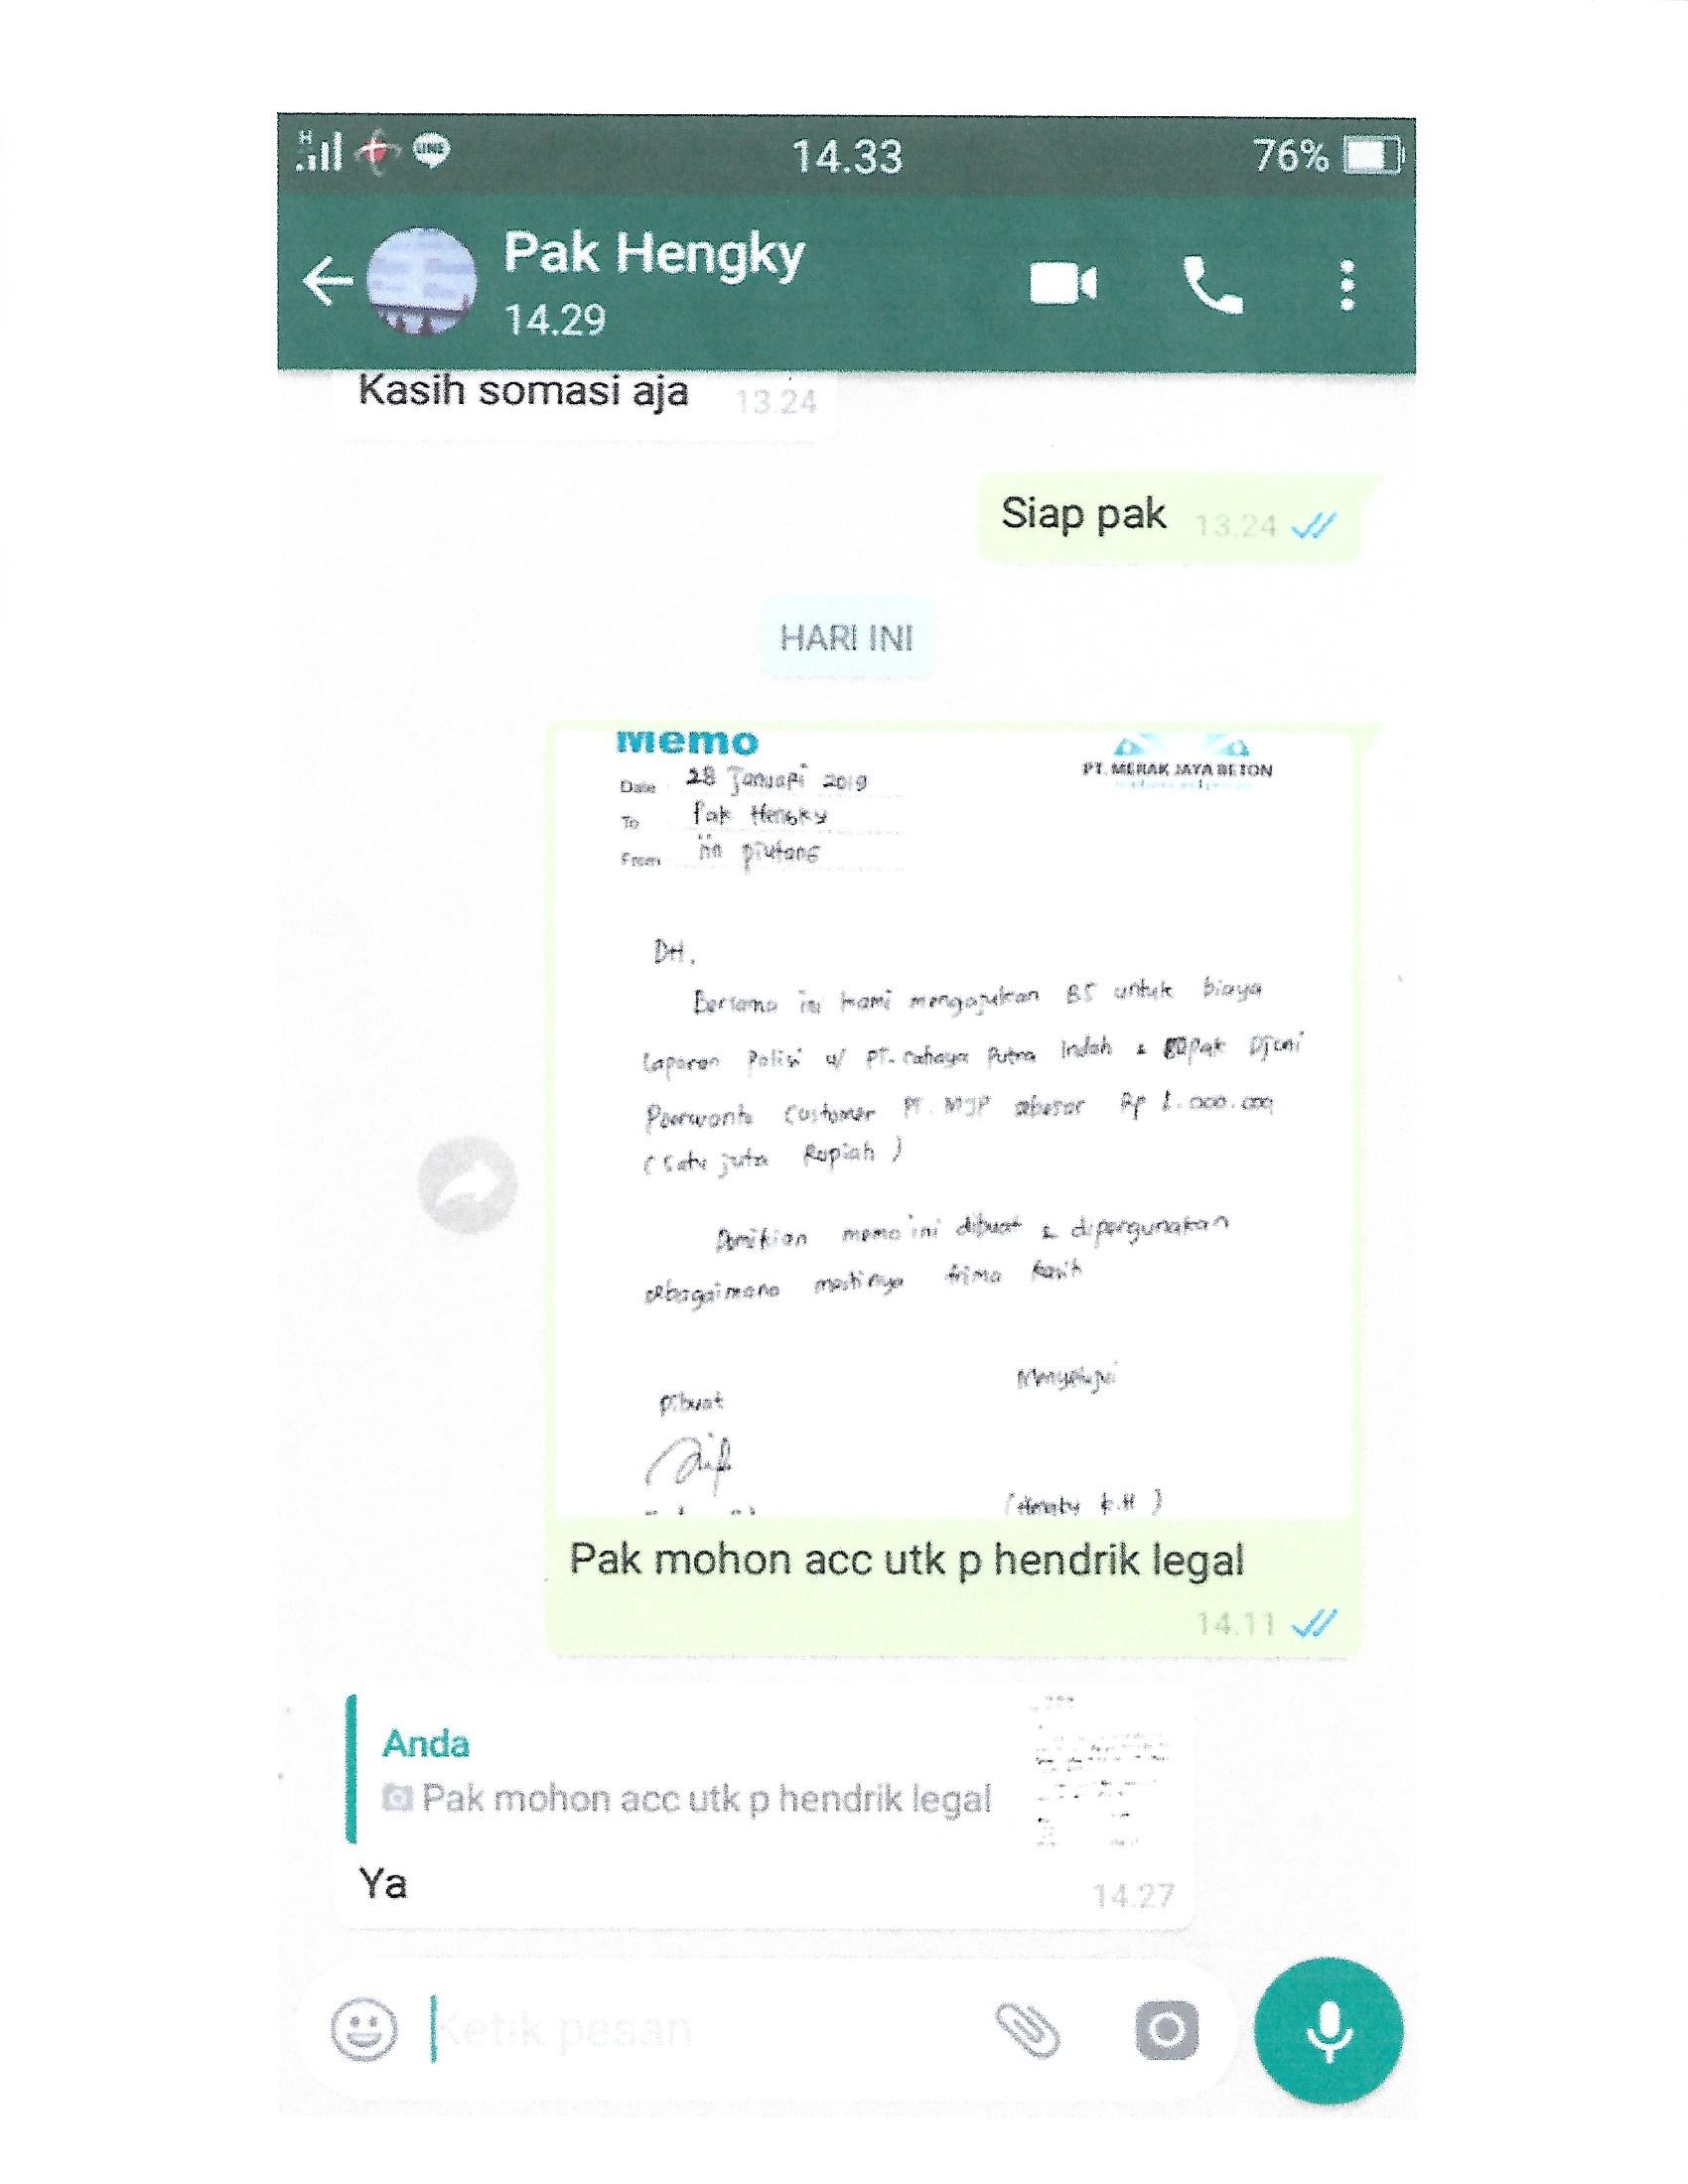 H
LINE
14.33
76%
Pak Hengky
14.29
Kasih somasi aja 13.24
Siap pak 13.24
HARI INI
Memo
PT. MERAK JAYA BETON
Date 28 Januari 2019
To Pak Hengky
From iin piutang
DH,
Bersama ini kami mengajukan BS untuk biaya
Laporan Polisi u/ PT. Cahaya Putra Indah & Pak Djuni
Poerwanto Customer PT. MJP sebesar Rp 1.000.000
(Satu juta Rupiah)
Demikian memo ini dibuat & dipergunakan
sebagaimana mestinya trima kasih
Menyetujui
Dibuat
(Hengky K.H)
Pak mohon acc utk p hendrik legal
14.11
Anda
Pak mohon acc utk p hendrik legal
Ya 14.27
Ketik pesan